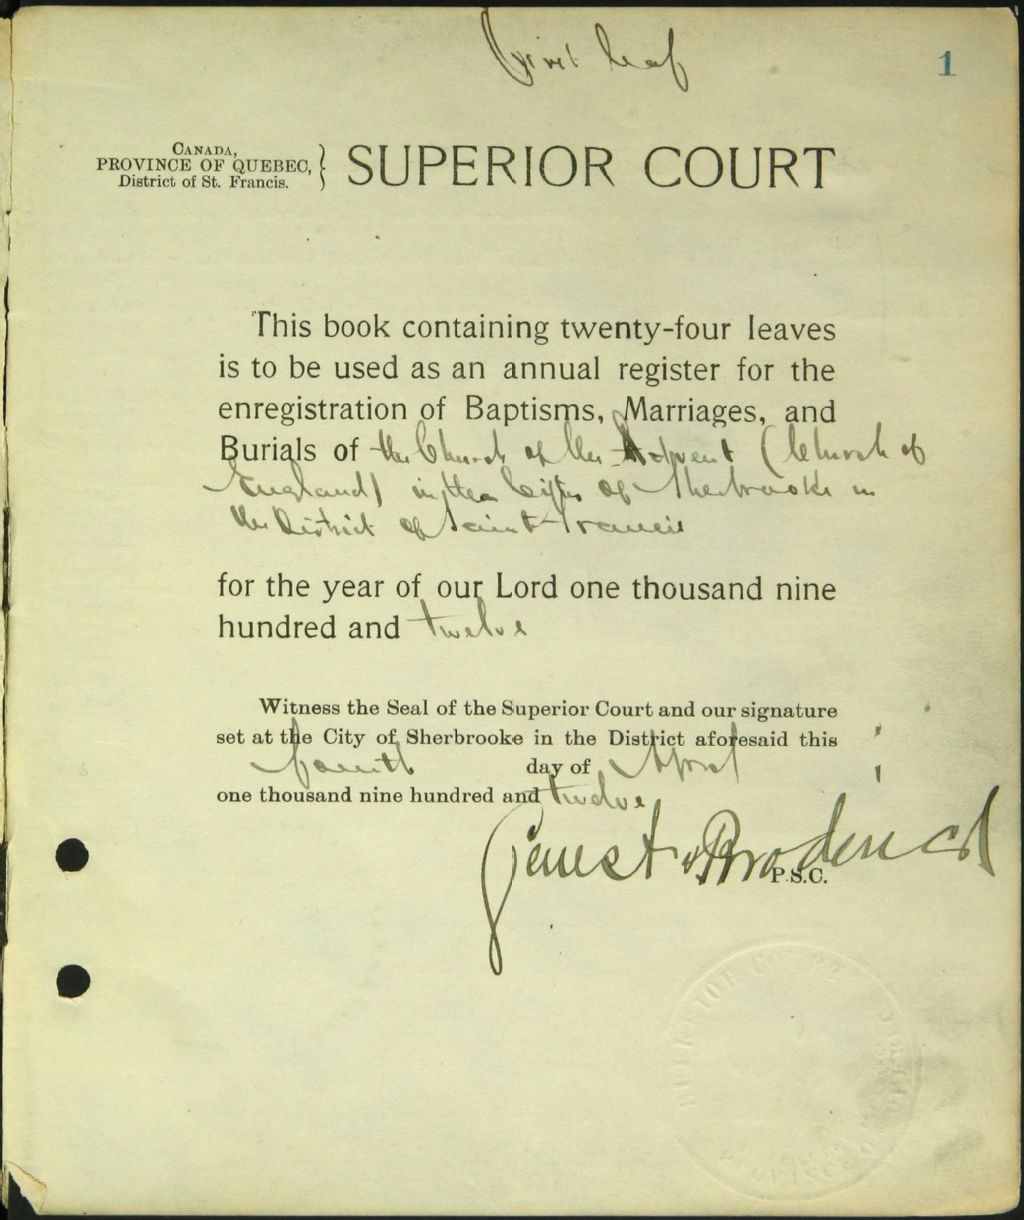 First leaf
1
Canada,
PROVINCE OF QUEBEC,
District of St. Francis.
SUPERIOR COURT
This book containing twenty-four leaves
is to be used as an annual register for the
enregistration of Baptisms, Marriages, and
Burials of the Church of the Advent (Church of
England) in the City of Sherbrooke in
the District of Saint Francis
for the year of our Lord one thousand nine
hundred and twelve
Witness the Seal of the Superior Court and our signature
set at the City of Sherbrooke in the District aforesaid this
fourth day of April
one thousand nine hundred and twelve
P.S.C.
SUPERIOR COURT
PROVINCE OF